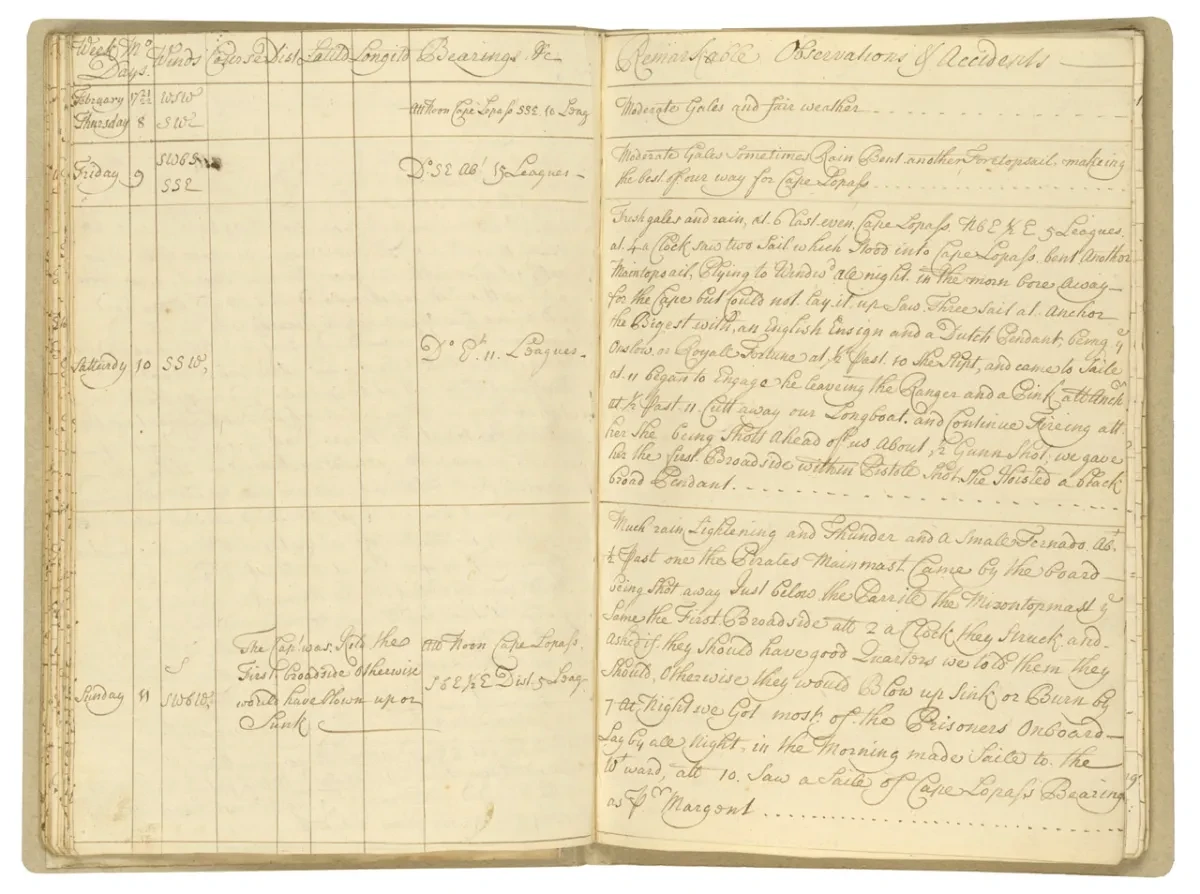 Week Mo Winds Course Dist Latitd Longitd Bearings &c
Days.
February 17 21/22 WSW
Thursday 8 SW
Att Noon Cape Lopass SSE. 10 Leag
Friday 9 SWbS
SSE
Do SE Abt 15 Leagues
Satturdy 10 SSW,
Do Et. 11. Leagues
Sunday 11 S
SWbW
The Capt. was Kild the
First broadside otherwise
would have blown up or
Sunk
Att Noon Cape Lopass.
SbE ½ E Dist. 5 Leag.
Remarkable Observations & Accidents
Moderate Gales and fair weather
Moderate Gales Sometimes Rain Bent another Foretopsail. making
the best of our way for Cape Lopass
Fresh gales and rain, at. 6 last even. Cape Lopass. NbE ½ E 5 Leagues.
at. 4 a Clock saw two Sail which Stood into Cape Lopass. bent Another
Maintopsail, Plying to Windwd all night. in the morn bore Away
for the Cape but Could not. lay it up Saw Three sail at. Anchor
the Bigest with, an English Ensign and a Dutch Pendant, being ye
Onslow. or Royall Fortune at ½ past. 10 she Slipt, and came to Saile
at. 11 began to Engage he leaveing the Ranger and a Pink att Anchr
at ½ Past 11. Cutt away our Longboat. and Continue Fireing att
her She being Shott Ahead of us About ½ Gunn Shot, we gave
her the first Broadside within Pistole Shot. She Hoisted a black
broad Pendant.
Much rain Lightening and Thunder and a Small Tornado. Abt
½ Past one the Pirates Mainmast Came by the board
being Shot away Just below the Parrile the Mizontopmast ye
Same the First Broadside att 2 a Clock they Struck and
asked if they Should have good Quarters we told them they
Should, Otherwise they would Blow up Sink or Burn by
7 At Night we Got most of the Prisoners Onboard
Lay by all Night. in the Morning made Saile to the
Wtward, att 10. Saw a Saile of Cape Lopass Bearing
as pr Margent